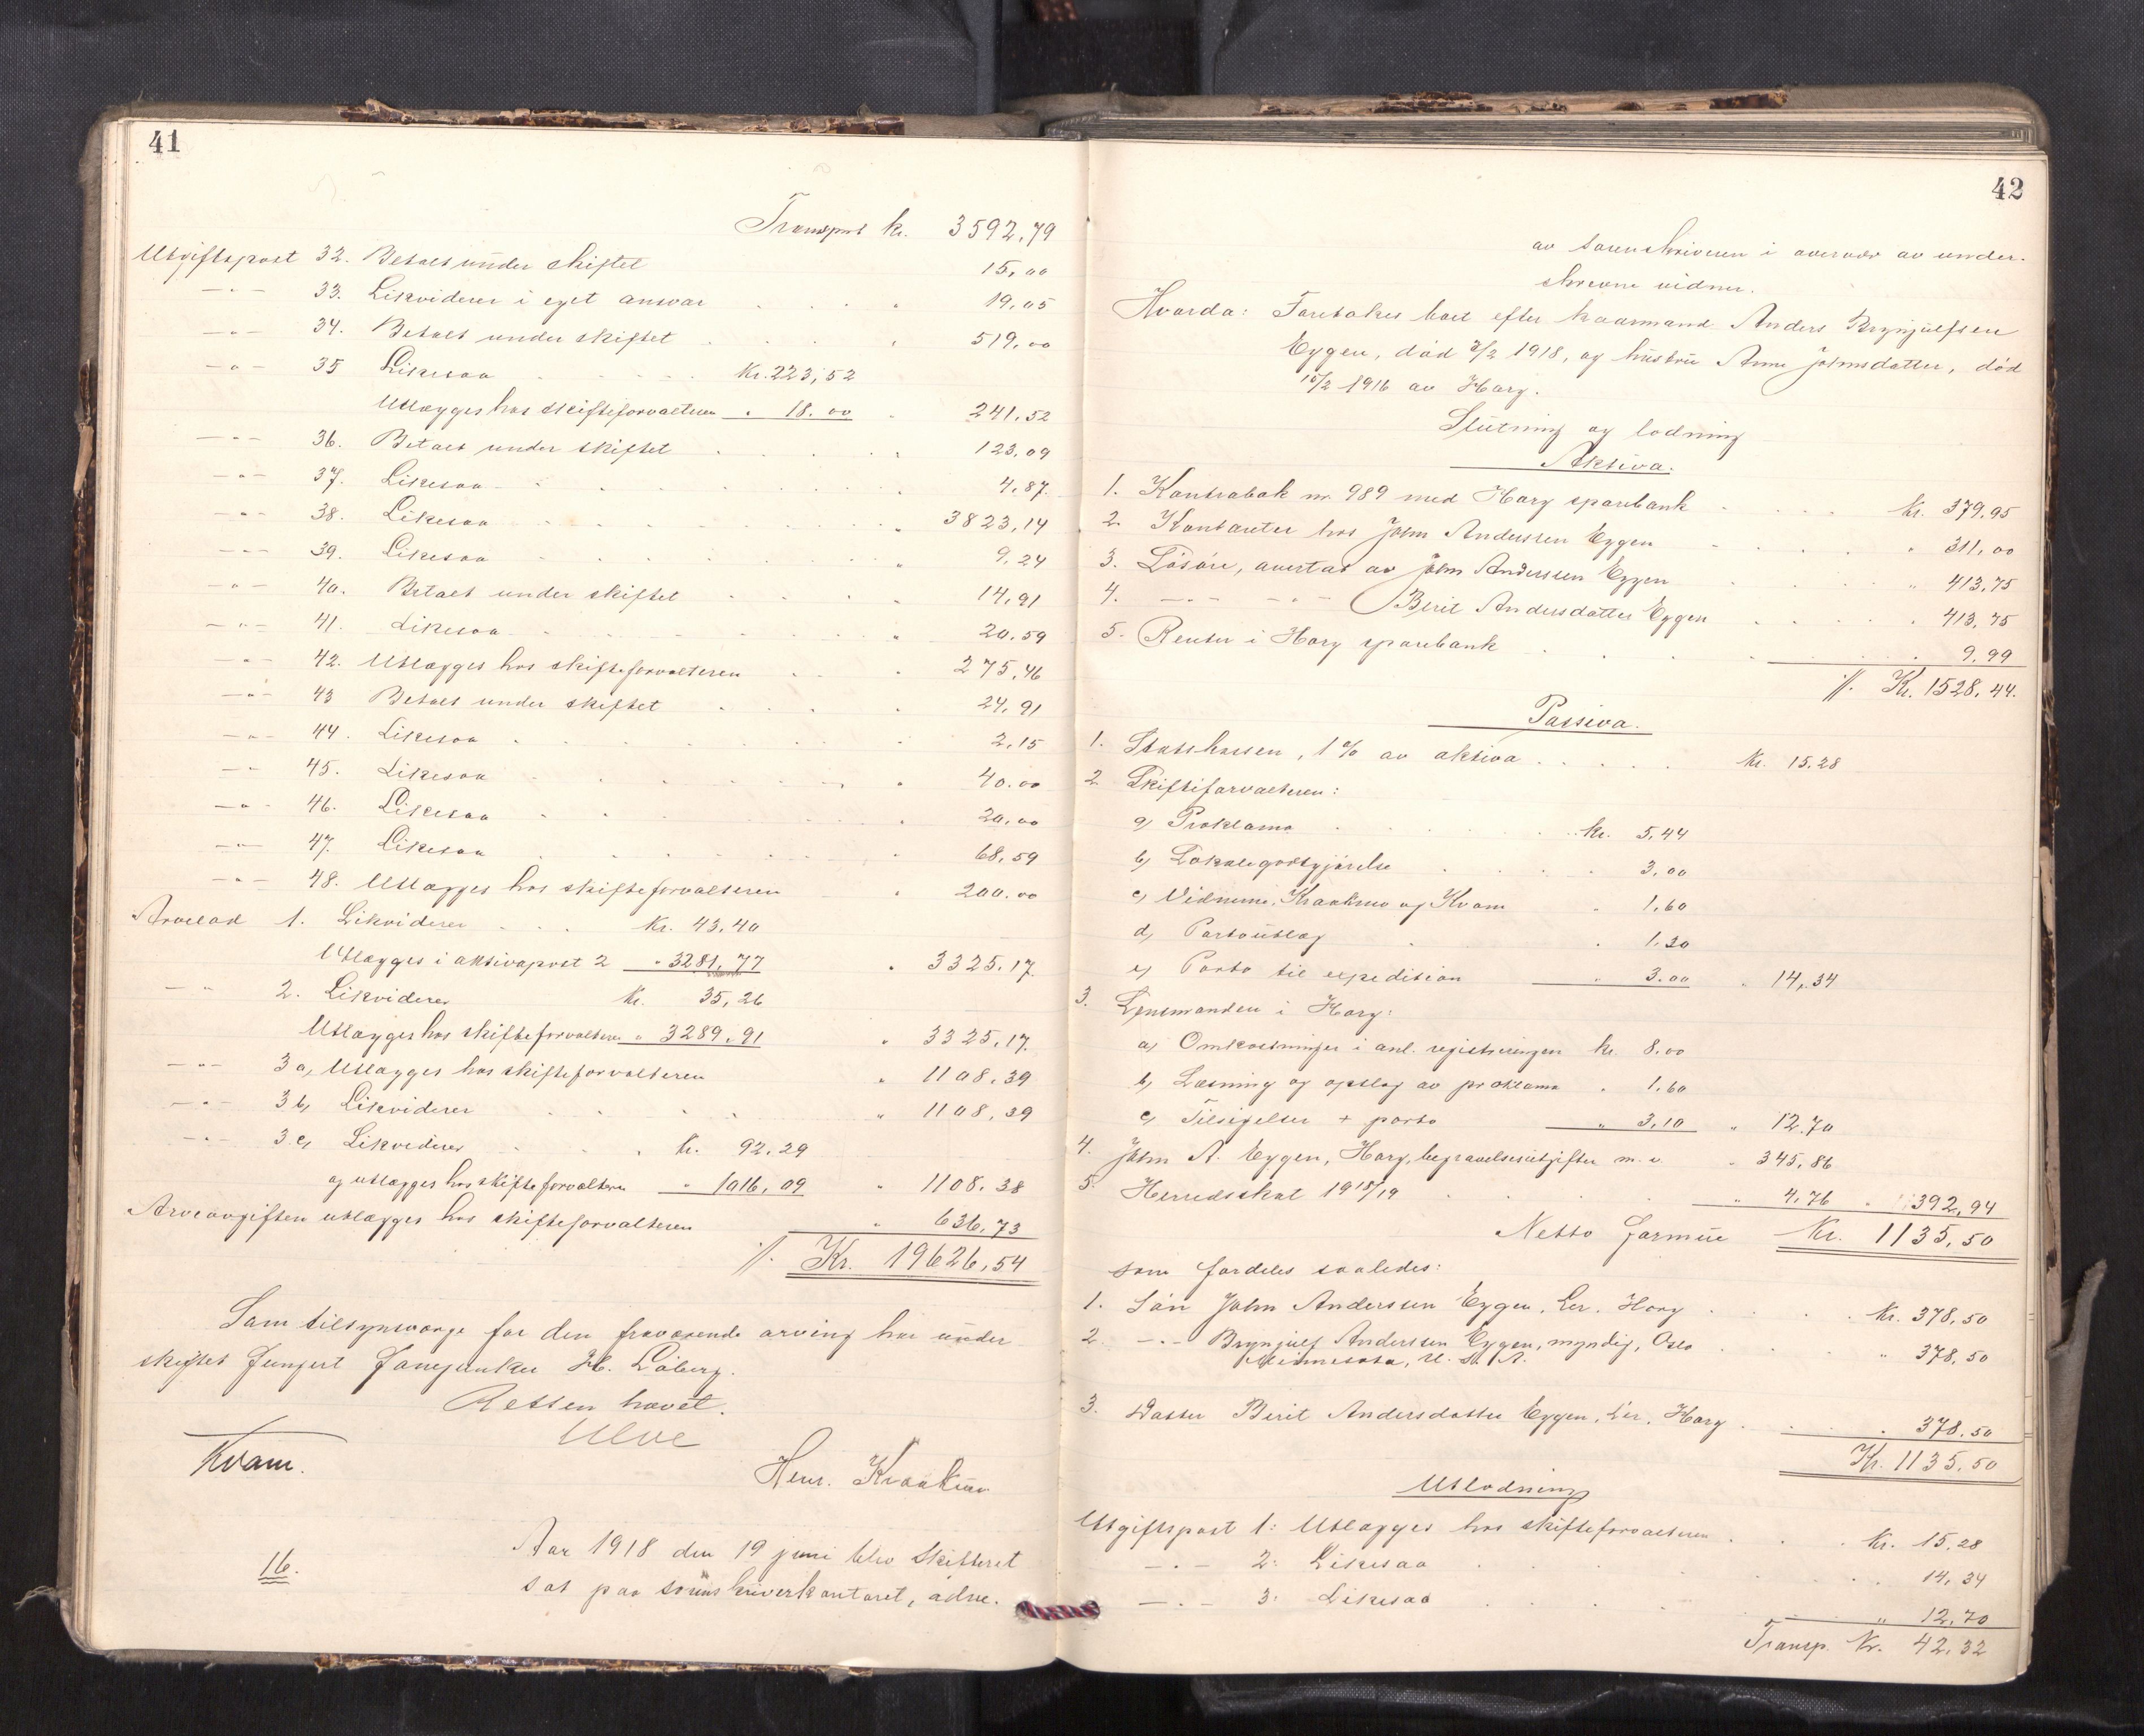 41
Transport kr. 3592,79
Utgiftspost 32. Betalt under skiftet 15,00
— " — 33. Likviderer i eget ansvar . . . . " 19,05
— " — 34. Betalt under skiftet . . . . " 519,00
— " — 35 Likesaa . . . . Kr. 223,52
Utlægges hos skifteforvalteren " 18.00 " 241,52
— " — 36. Betalt under skiftet . . . . " 123,09
— " — 37. Likesaa . . . . " 4,87
— " — 38. Likesaa . . . . " 3823,14
— " — 39. Likesaa . . . . " 9,24
— " — 40. Betalt under skiftet . . . . " 14,91
— " — 41. Likesaa . . . . " 20.59
— " — 42. Utlægges hos skifteforvalteren . . . " 275,46
— " — 43 Betalt under skiftet . . . . " 24,91
— " — 44. Likesaa . . . . " 2,15
— " — 45. Likesaa . . . . " 40.00
— " — 46. Likesaa . . . . " 20,00
— " — 47. Likesaa . . . . " 68,59
— " — 48. Utlægges hos skifteforvalteren " 200.00
Arvelod 1. Likviderer . . . Kr. 43,40
Utlægges i aktivapost 2 " 3281,77 " 3325,17.
— " — 2. Likviderer Kr. 35,26
Utlægges hos skifteforvalteren " 3289,91 " 3325,17.
— " — 3 a, Utlægges hos skifteforvalteren " 1108,39
— " — 3 b, Likviderer . . . . " 1108,39
— " — 3 c, Likviderer . . . Kr. 92,29
og utlægges hos skifteforvalteren " 1016,09 " 1108,38
Arveavgiften utlægges hos skifteforvalteren " 636,73
./. Kr. 19626,54
Som tilsynsverge for den fraværende arving har under
skiftet fungert fanejunker H. Löberg.
Retten hævet.
Ulve
Kvam.
Henr. Kraakmo
16.
Aar 1918 den 19 juni blev skifteret
sat paa sorenskriverkontoret, adm.
42
av sorenskriveren i overvær av under-
skrevne vidner.
Hvorda: Foretokes boet efter kaarmand Anders Brynjulfsen
Eggen, död 2/2 1918, og hustru Anne Johnsdatter, död
10/2 1916 av Horg.
Slutning og lodning
Aktiva.
1. Kontrabok nr. 989 med Horg sparebank . . . . Kr. 379,95
2. Kontanter hos John Anderssen Eggen . . . . " 311,00
3. Lösöre, overtat av John Anderssen Eggen . . . . " 413,75
4. — " — — " — Berit Andersdatter Eggen . . . . " 413,75
5. Renter i Horg sparebank . . . . " 9,99
./. Kr. 1528,44.
Passiva.
1. Statskassen, 1% av aktiva . . . . Kr. 15.28
2 Skifteforvalteren:
a) Proklama . . . . kr. 5,44
b) Lokalegodtgjörelse . . . . 3,00
c) Vidnerne, Kraakmo og Kvam " 1,60
d) Portoutlæg . . " 1,30
e) Porto til expedition " 3.00 " 14,34
3. Lensmanden i Horg:
a) Omkostninger i anl. registreringen kr. 8.00
b) Læsning og opslag av proklama " 1,60
c) Tilsigelser + porto " 3,10 " 12.70
4. John A. Eggen, Horg, begravelsesutgifter m.v. " 345,86
5. Herredsskat 1918/19 . . . . " 4,76 " 392,94
Netto formue Kr. 1135,50
som fordeles saaledes:
1. Sön John Anderssen Eggen, her, Horg . . . . Kr. 378,50
2 — " — Brynjulf Anderssen Eggen, myndig, Oslo
Minnesota, U. S. A. . . . " 378,50
3. Datter Berit Andersdatter Eggen, her, Horg . . . . 378,50
Kr. 1135,50
Utlodning
Utgiftspost 1: Utlægges hos skifteforvalteren . . . Kr. 15,28
— " — 2: Likesaa . . . . 14,34
— " — 3: Likesaa . . . . " 12,70
Transp. Kr. 42,32